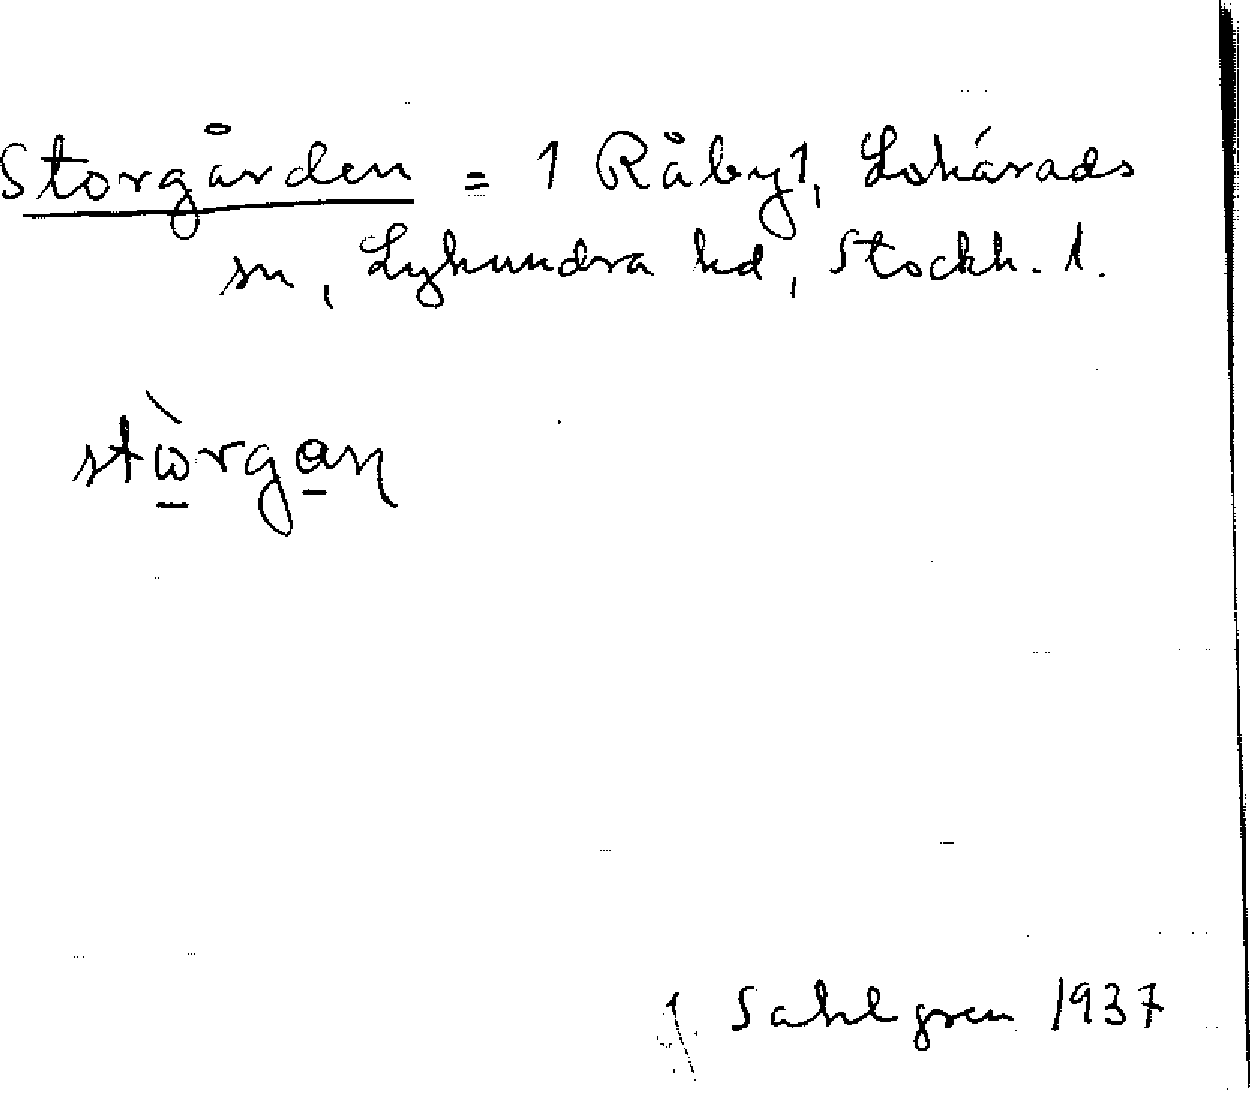 Storgården = 1 Råby 1, Lohärads
sn, Lyhundra hd, Stockh. l.
stὼ̠rga̠ɳ
J. Sahlgren 1937